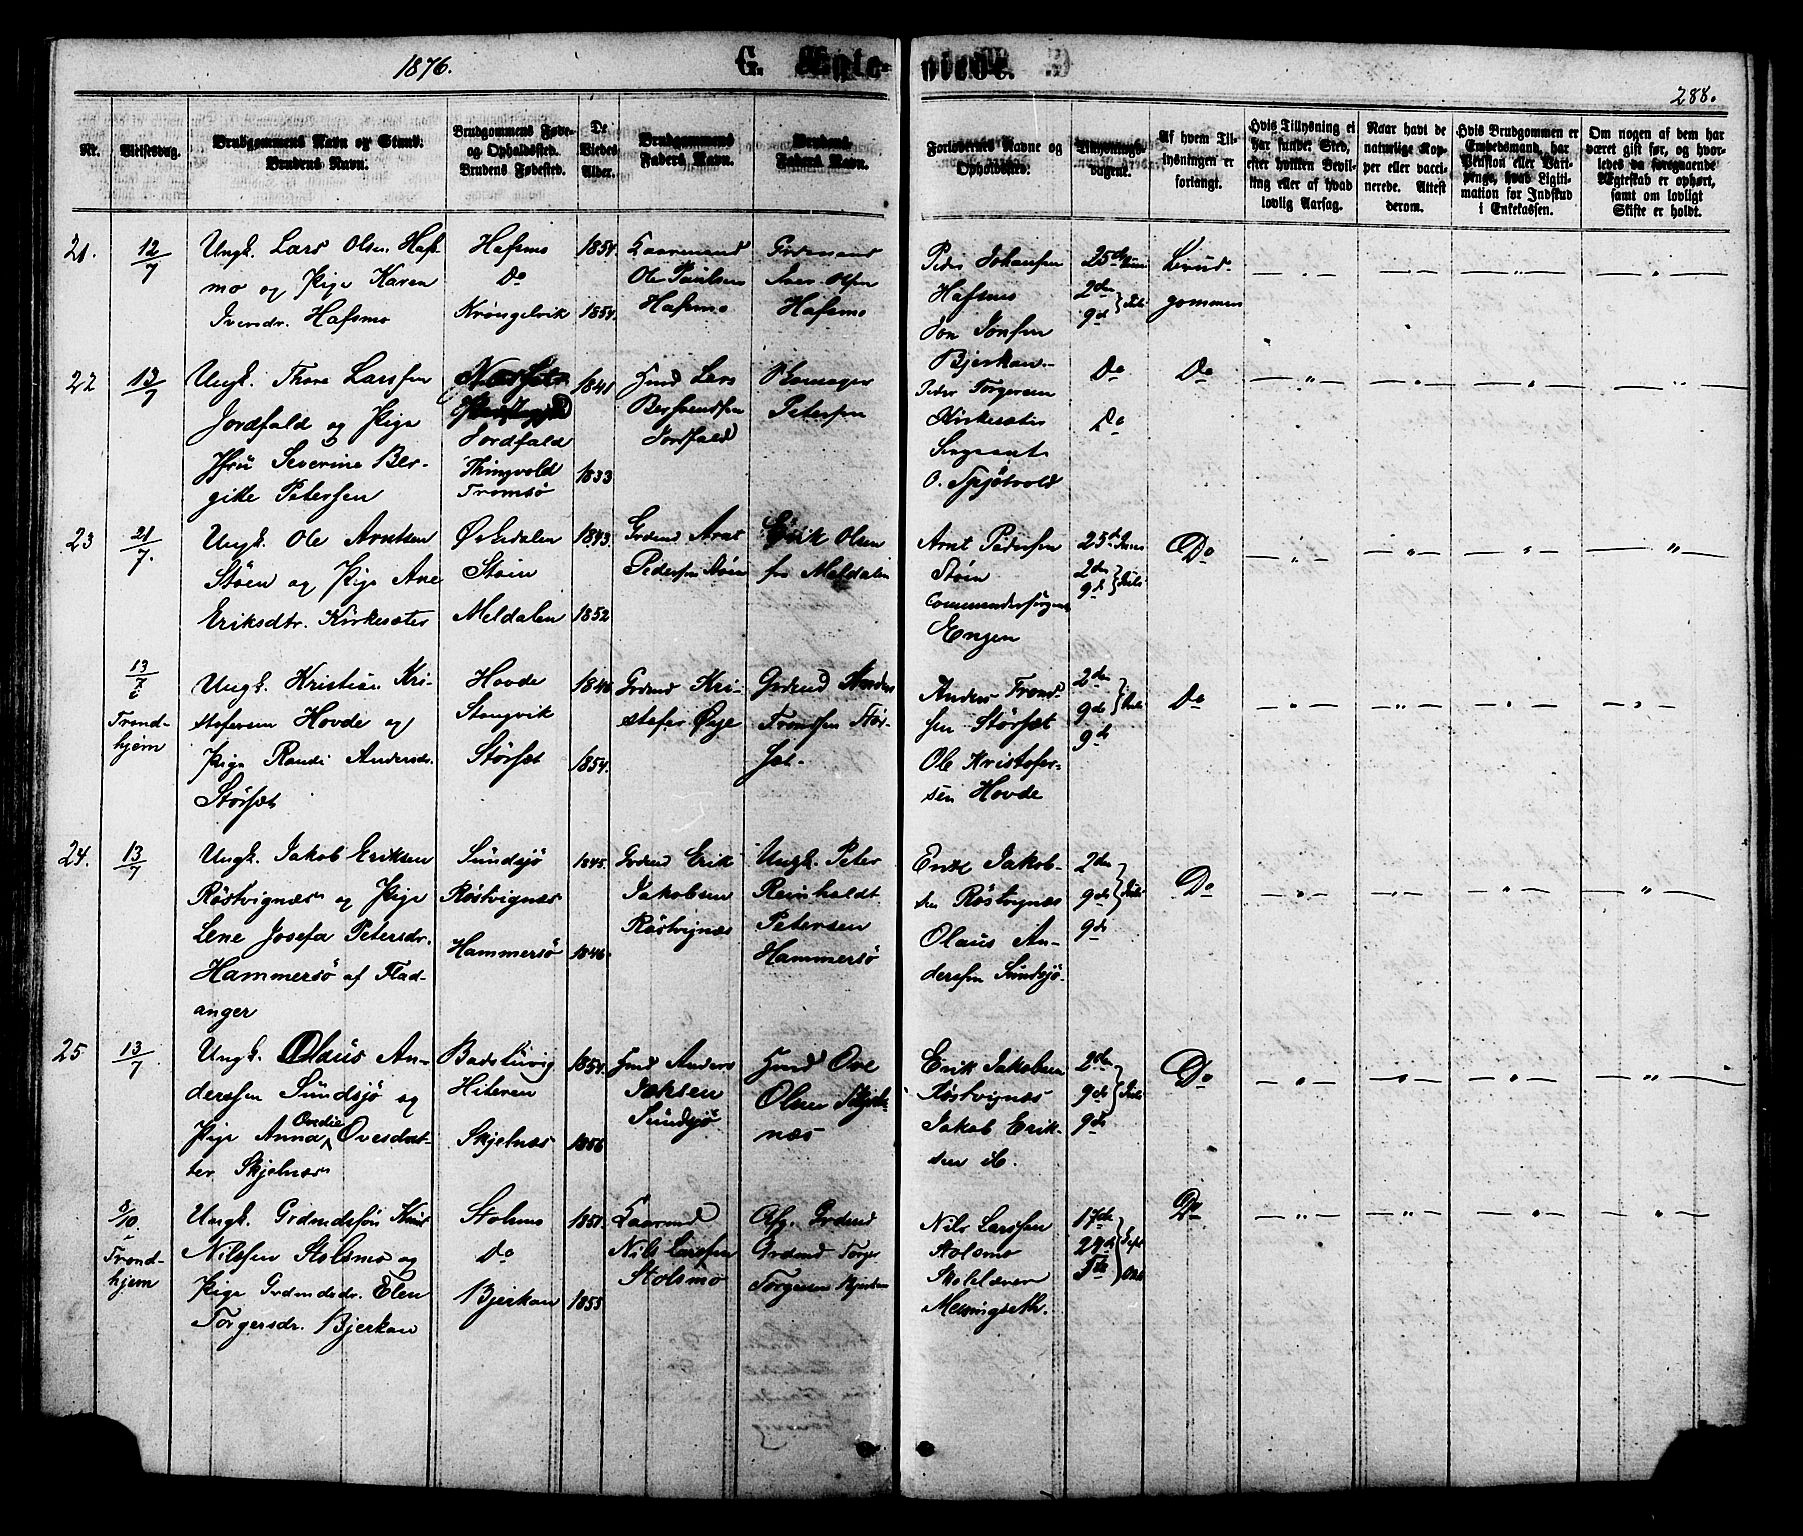 1876.
G. Ægte-
viede.
288.
Nr.
Vielsesdag.
Brudgommens Navn og Stand.
Brudens Navn.
Brudgommens Føde-
og Opholdssted.
Brudens Fødested.
De
Viedes
Alder.
Brudgommens
Faders Navn.
Brudens
Faders Navn.
Forlovernes Navne og
Opholdssted.
Tillysnings-
dagene.
Af hvem Til-
lysningen er
forlangt.
Hvis Tillysning ei
har fundet Sted,
efter hvilken Bevil-
ling eller af hvad
lovlig Aarsag.
Naar havt de
naturlige Kop-
per eller vacci-
nerede. Attest
derom.
Hvis Brudgommen er
Embedsmand, har
Pension eller Vart-
penge, hvad Ligiti-
mation for Indskud
i Enkekassen.
Om nogen af dem har
været gift før, og hvor-
ledes da foregaaende
Ægteskab er ophørt,
samt om lovligt
Skifte er holdt.
21.
12/7
Ungk. Lars Olsen Hafs-
mo og Pige Karen
Iversdr. Hafsmo
Hafsmo
Do
Vrongelvik
1854
1854.
Kaarmand
Ole Paulsen
Hafsmo
Grdmand
Iver Olsen
Hafsmo
Peder Johansen
Hafsmo
Jon Jonsen
Bjerkan
25de Juni
2den
9de } Juli
Brud-
gommen
22
13/7
Ungk. Thore Larssen
Jordfald og Pige
Jfru Severine Ber-
gitte Petersen
Jordfald
Thingvold
Tromsø
1841
1833
Hmd Lars
Jordfald
Petersen
Peder Torgersen
Kirkesæter
Sergeant
O. Spjøtvold
Do
Do
Do
23
21/7.
Ungk. Ole Arntsen
Støen og Pige Ane
Eriksdtr. Kirkesæter
Ørkedalen
Støen
Meldalen
1843
1852
Grdmd Arnt
Pedersen Støen
Erik Olsen
fra Meldalen
Arnt Pedersen
Støen
Commandersergeant
Engen
25de Juni
2den
9de } Juli
Do
13/7
i
Trond-
hjem
Ungk. Kristian Kri-
stofersen Hovde og
Pige Randi Andersdr.
Størset
Hovde
Stangvik
Størset
1846
1854.
Grdmd Kri-
stofer Øye
Grdmd Anders
Tronsen Stør-
set
Anders Trond-
sen Størset
Ole Kristofer-
sen Hovde
2den
9de } Juli
9de
Do
24.
13/7
Ungk. Jakob Eriksen
Røstvignæs og Pige
Lene Josefa Petersdr.
Hammersø af Flad-
anger
Sundsjø
Røstvignæs
Hammersø
1845.
1846.
Grdmd Erik
Jakobsen
Røstvignæs
Ungk. Peter
Reinholdt
Petersen
Hammersø
Erik Jakob-
sen Røstvignæs
Olaus An-
derssen Sundsjø
2den
9de } Juli
9de
Do
25
13/7
Ungk. Olaus An-
derssen Sundsjø og
Pige Anna Ondie Ovesdat-
ter Skjelnæs
Badstuvig
Hiteren
Skjelnæs
1854.
1856
Hmd Anders
Sundsjø
Hmd Ove
Olsen Skjel-
næs
Erik Jakobsen
Røstvignæs
Jakob Erik-
sen ib.
2den
9de } Juli
9de
Do
8/10
i
Trond-
hjem
Ungk. Grdmdsøn Knut
Nilssen Stolsmo og
Pige Grdmdsdr. Elen
Torgersdr. Bjerkan
Stolsmo
Do
Bjerkan
1851.
1853
Kaarmd
Nils Larssen
Stolsmo
Afg. Grdmd
Torgersen Bjerkan
Nils Larssen
Stolsmo
Skolelærer
Melingseth.
17de
24de } Sept
Do